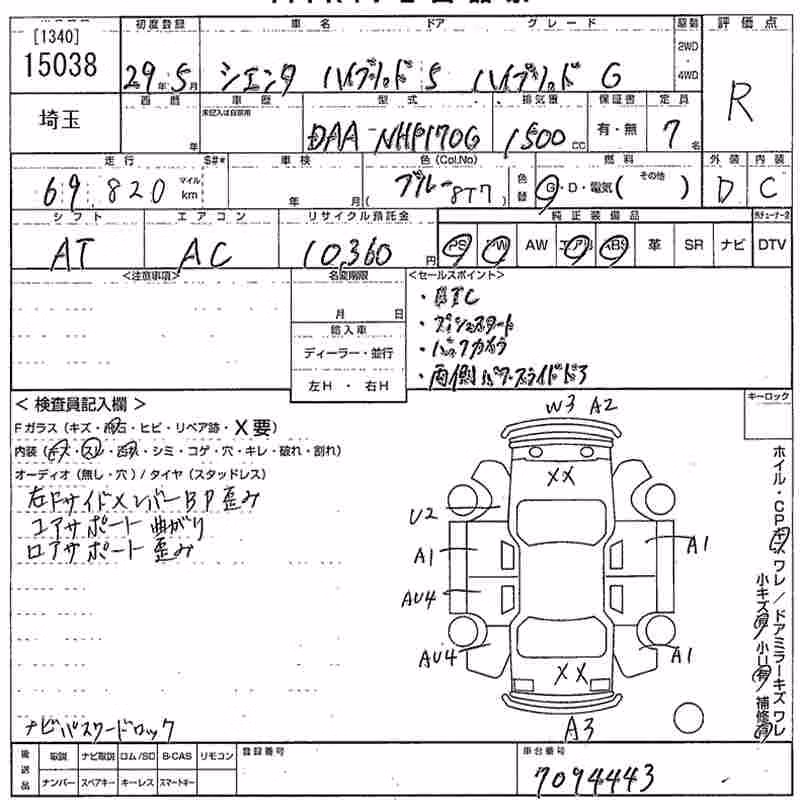 [1340]
15038
初度登録
車名
ドア
グレード
駆動
評価点
29年5月
シエンタ ハイブリッド 5 ハイブリッド G
2WD
・
4WD
R
埼玉
西暦
年
車歴
未記入は自家用
型式
DAA-NHP170G
排気量
1500cc
保証書
有・無
定員
7名
走行
69,820
マイル
km
S#*
車検
年 月
色(Col.No)
ブルー 8T7
色替
燃料
G・D・電気( その他 )
外装
D
内装
C
シフト
AT
エアコン
AC
リサイクル預託金
10,360円
純正装備品
PS PW AW エアB ABS 革 SR ナビ DTV
<注意事項>
名変期限
月 日
輸入車
ディーラー・並行
左H ・ 右H
<セールスポイント>
・ETC
・プッシュスタート
・バックカメラ
・両側パワースライドドア
キーロック
<検査員記入欄>
Fガラス(キズ・飛石・ヒビ・リペア跡・X要)
内装(キズ・スレ・汚れ・シミ・コゲ・穴・キレ・破れ・割れ)
オーディオ(無し・穴)/タイヤ(スタッドレス)
右FサイドメンバーBP歪み
コアサポート曲がり
ロアサポート歪み
ナビパスワードロック
W3 A2
XX
U2
A1
A1
AU4
AU4
A1
XX
A3
ホイル・CPキズ ワレ/ドアミラーキズ ワレ
小キズ有 小凹有 補修有
搬送品
取説 ナビ取説 ロム/SD B-CAS リモコン
ナンバー スペアキー キーレス スマートキー
登録番号
車台番号
7094443